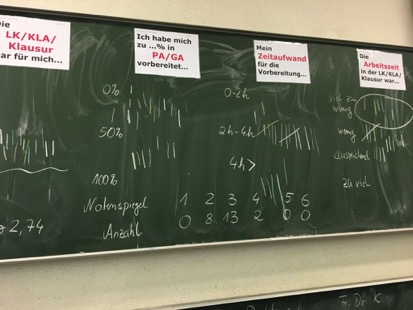 Die
LK/KLA/
Klausur
war für mich...
Ich habe mich
zu ...% in
PA/GA
vorbereitet...
Mein
Zeitaufwand
für die
Vorbereitung...
Die
Arbeitszeit
in der LK/KLA/
Klausur war...
0%
50%
100%
0-2h
2h-4h
4h>
viel zu
wenig
wenig
ausreichend
zu viel
Notenspiegel 1 2 3 4 5 6
Anzahl 0 8 13 2 0 0
ø 2,74
Fr. Dr. K.